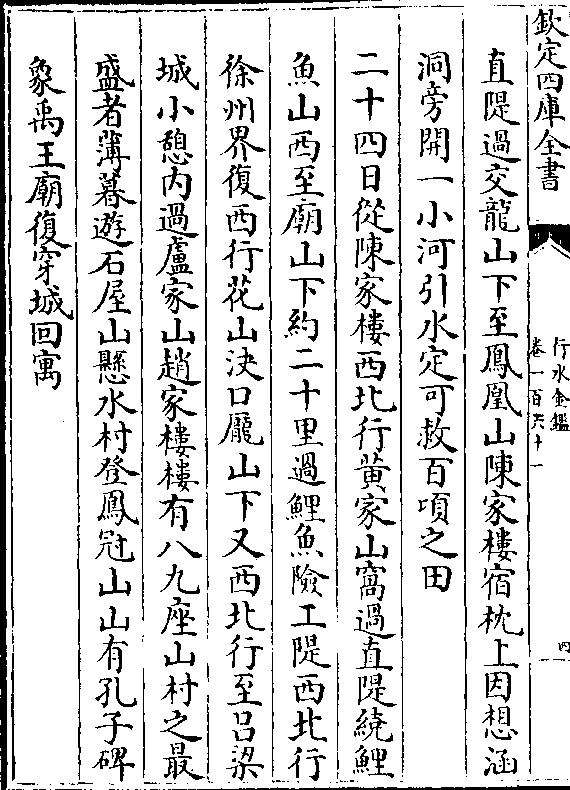 欽定四庫全書
行水金鑑
卷一百六十一
四
直隄過交龍山下至鳳凰山陳家樓宿枕上因想涵
洞旁開一小河引水定可救百項之田
二十四日從陳家樓西北行黃家山窩過直隄繞鯉
魚山西至廟山下約二十里過鯉魚險工隄西北行
徐州界復西行花山決口龎山下又西北行至吕梁
城小憩內過盧家山趙家樓樓有八九座山村之最
盛者薄暮遊石屋山懸水村登鳳冠山山有孔子碑
象禹王廟復穿城回寓